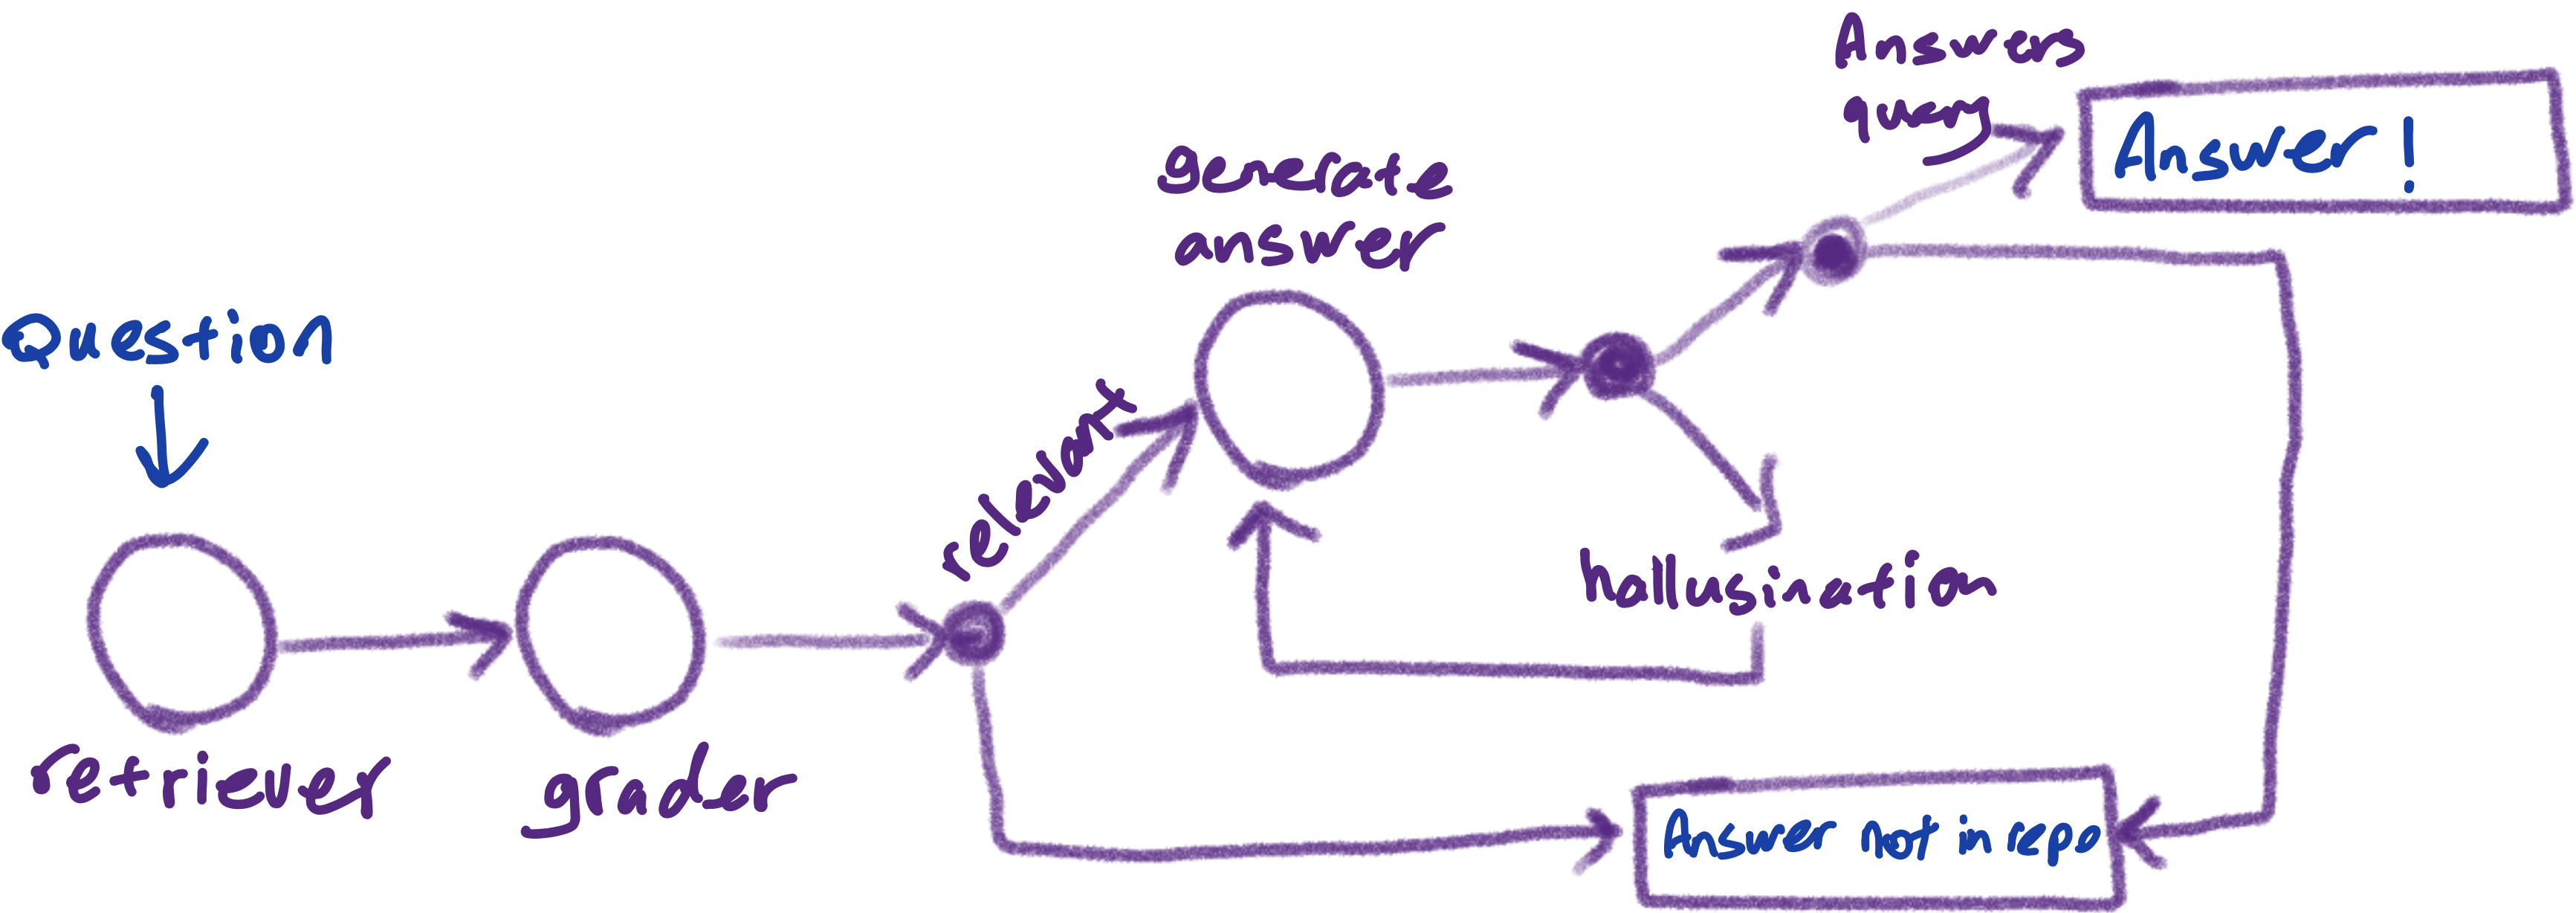 Question
retriever
grader
relevant
generate
answer
hallusination
Answers
query
Answer!
Answer not in repo